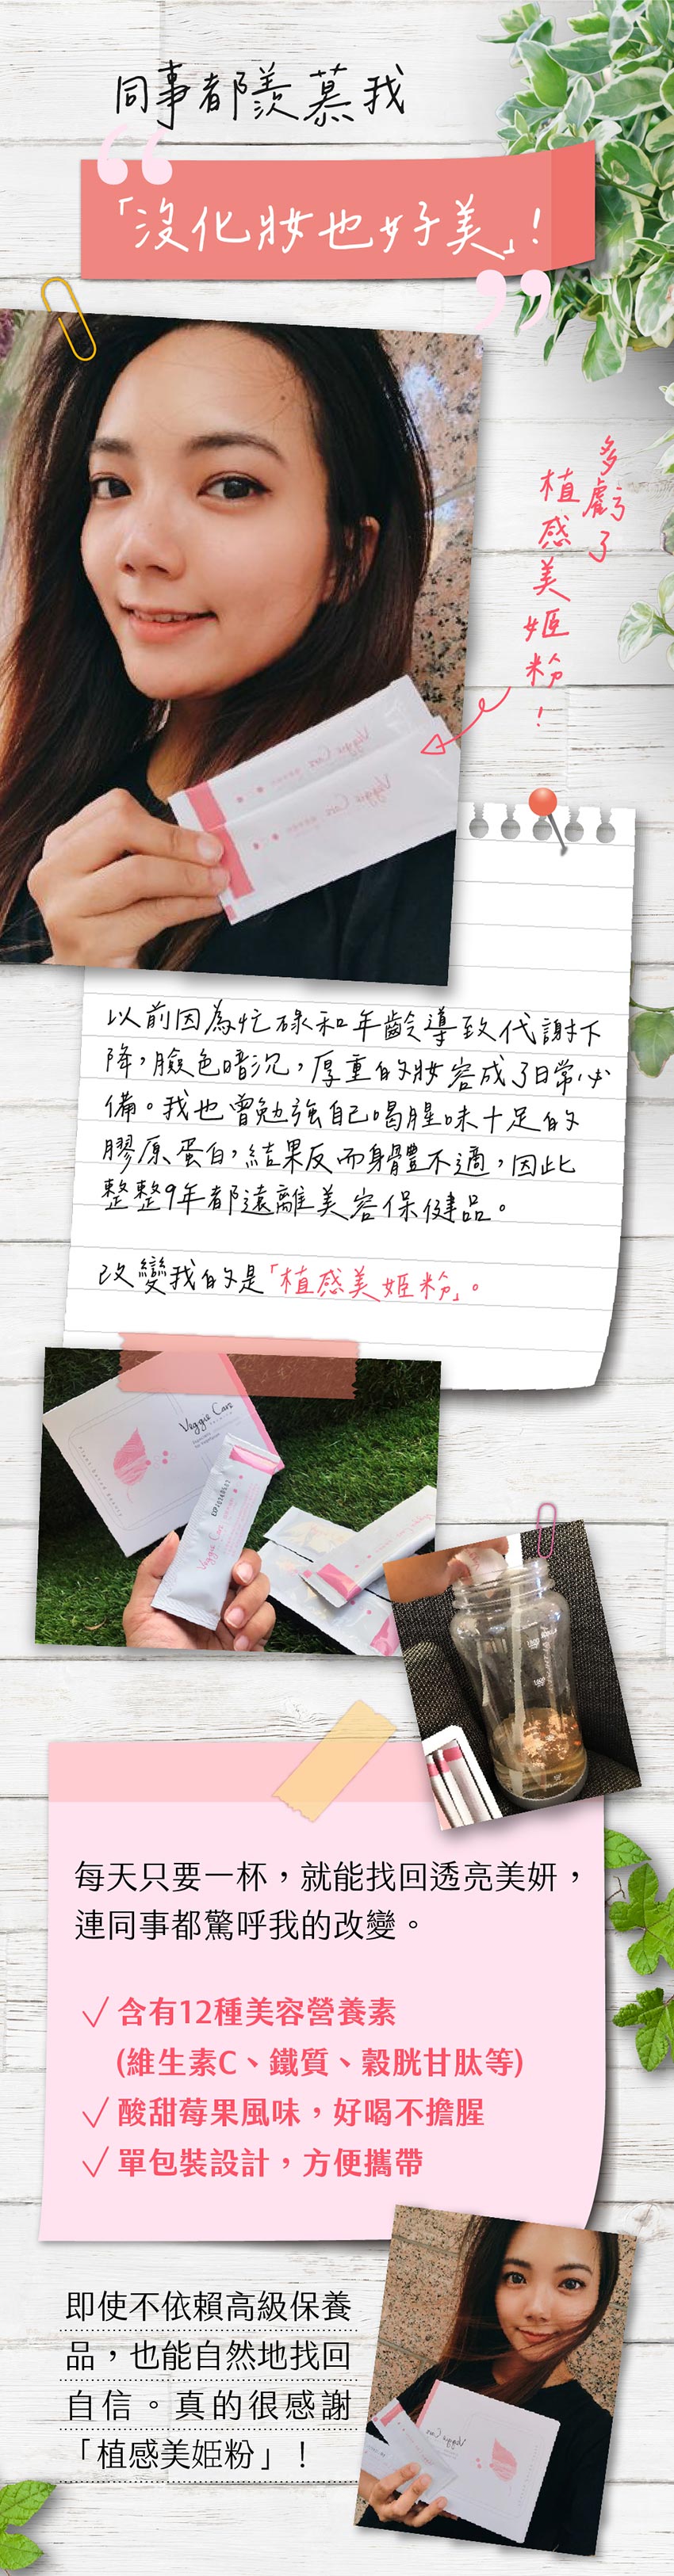 同事都羨慕我
「沒化妝也好美」!
多虧了
植感美姬粉!
Veggie Care
Veggie Care
以前因為忙碌和年齡導致代謝下
降,臉色暗沉,厚重的妝容成了日常必
備。我也曾勉強自己喝腥味十足的
膠原蛋白,結果反而身體不適,因此
整整9年都遠離美容保健品。
改變我的是「植感美姬粉」。
Veggie Care
Veggie Care
每天只要一杯,就能找回透亮美妍,
連同事都驚呼我的改變。
√ 含有12種美容營養素
(維生素C、鐵質、穀胱甘肽等)
√ 酸甜莓果風味,好喝不擔腥
√ 單包裝設計,方便攜帶
即使不依賴高級保養
品,也能自然地找回
自信。真的很感謝
「植感美姫粉」!
Veggie Care